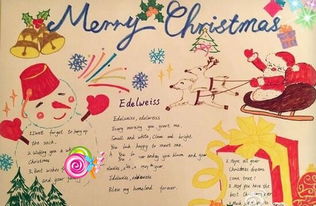 Merry Christmas
Edelweiss
Edelweiss, edelweiss
Every morning you greet me
Small and white, clean and bright
You look happy to meet me
bloom and grow
Edelweiss, edelweiss
Bless my homeland forever
1. I won't forget to hang up
the sock.
Christmas
3. Best wishes
and your family
1. May all your
Christmas dreams
come true!
2. May you have the
best Christmas